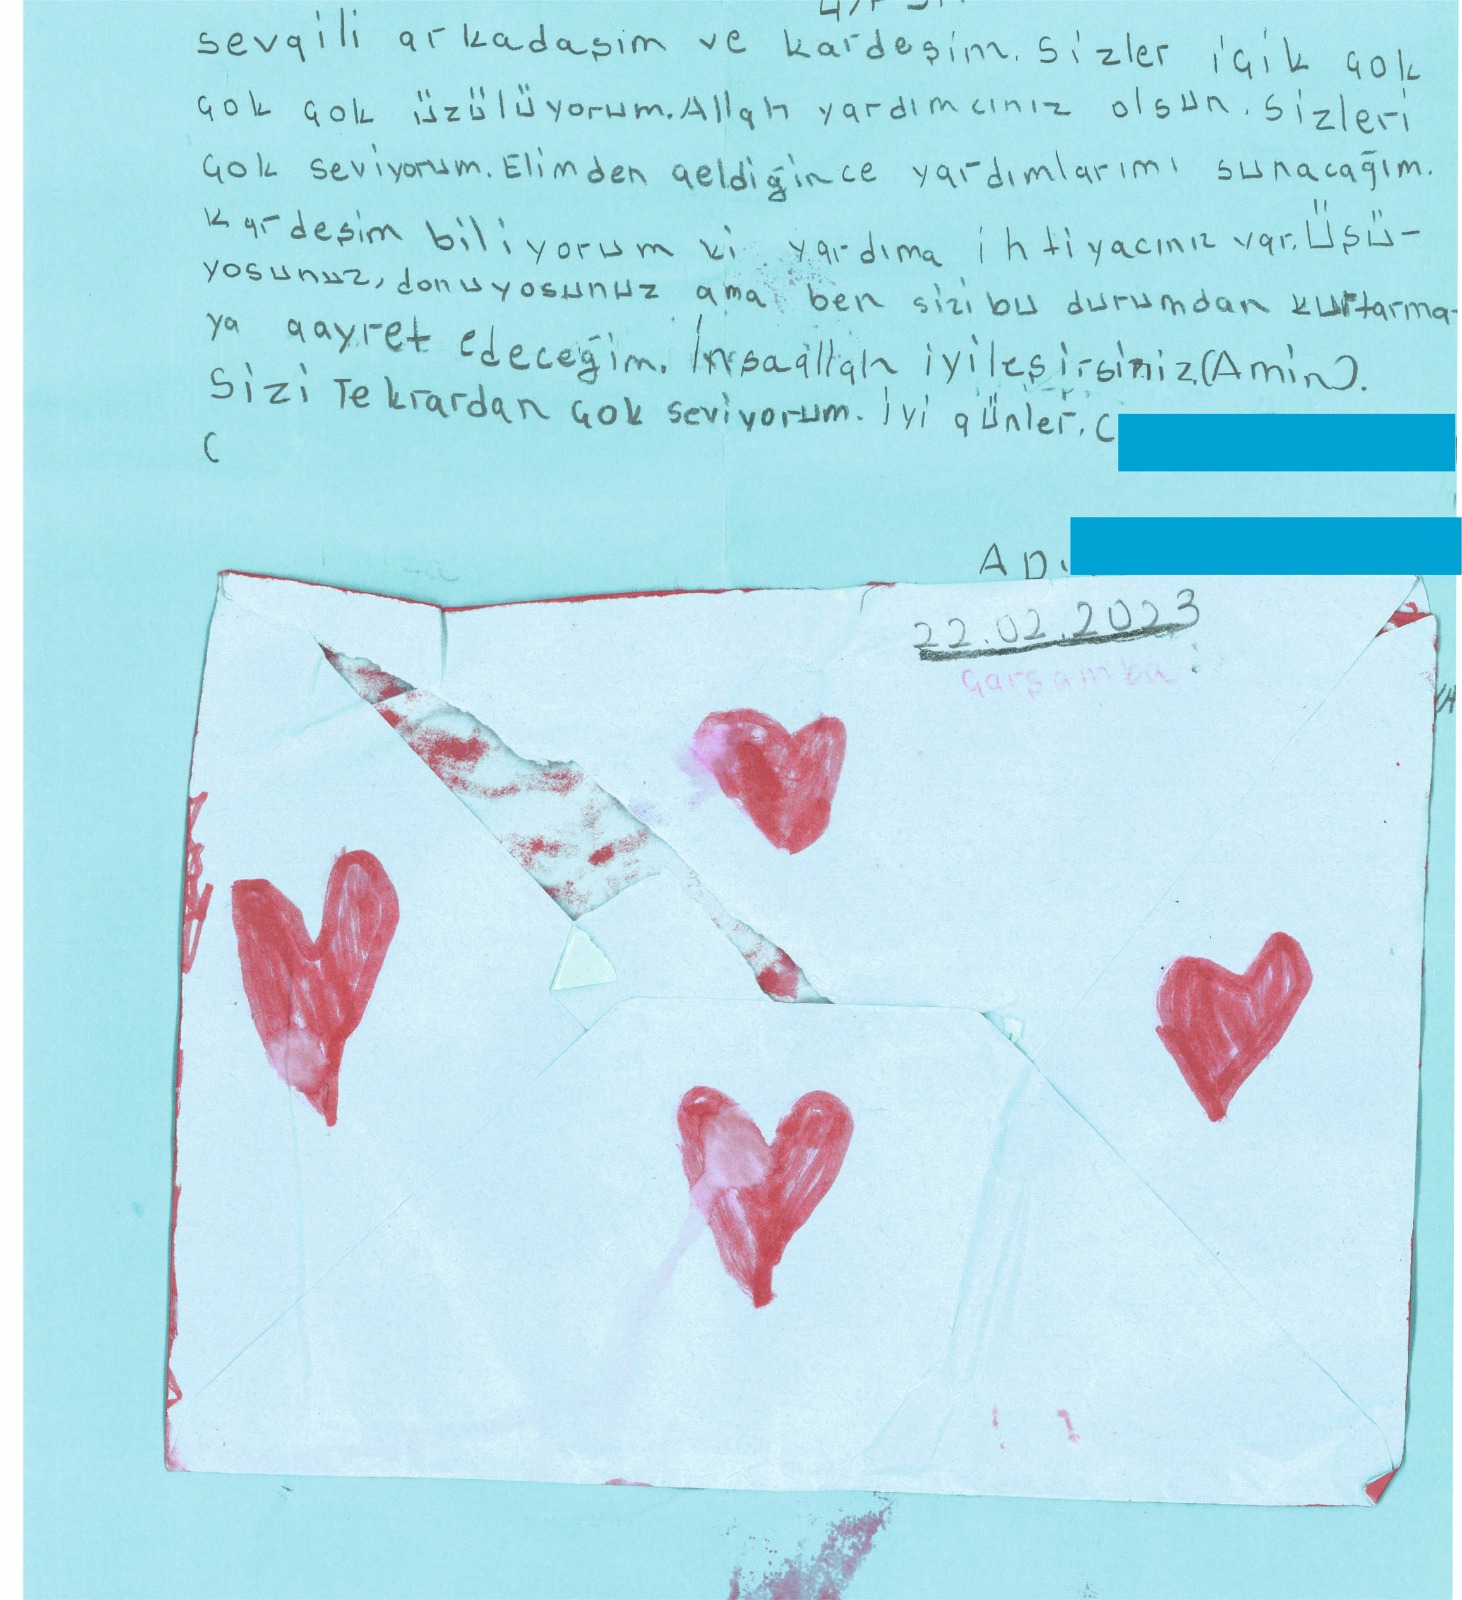 sevgili arkadaşım ve kardeşim. Sizler içik çok
çok çok üzülüyorum. Allah yardımcınız olsun. Sizleri
çok seviyorum. Elimden geldiğince yardımlarımı sunacağım.
Kardeşim biliyorum ki yardıma ihtiyacınız var. Üşü-
yosunuz, donuyosunuz ama ben sizi bu durumdan kurtarma-
ya gayret edeceğim. İnşaallah iyileşirsiniz (Amin).
Sizi Tekrardan çok seviyorum. İyi günler. C
C
AD:
22.02.2023
Çarşamba: